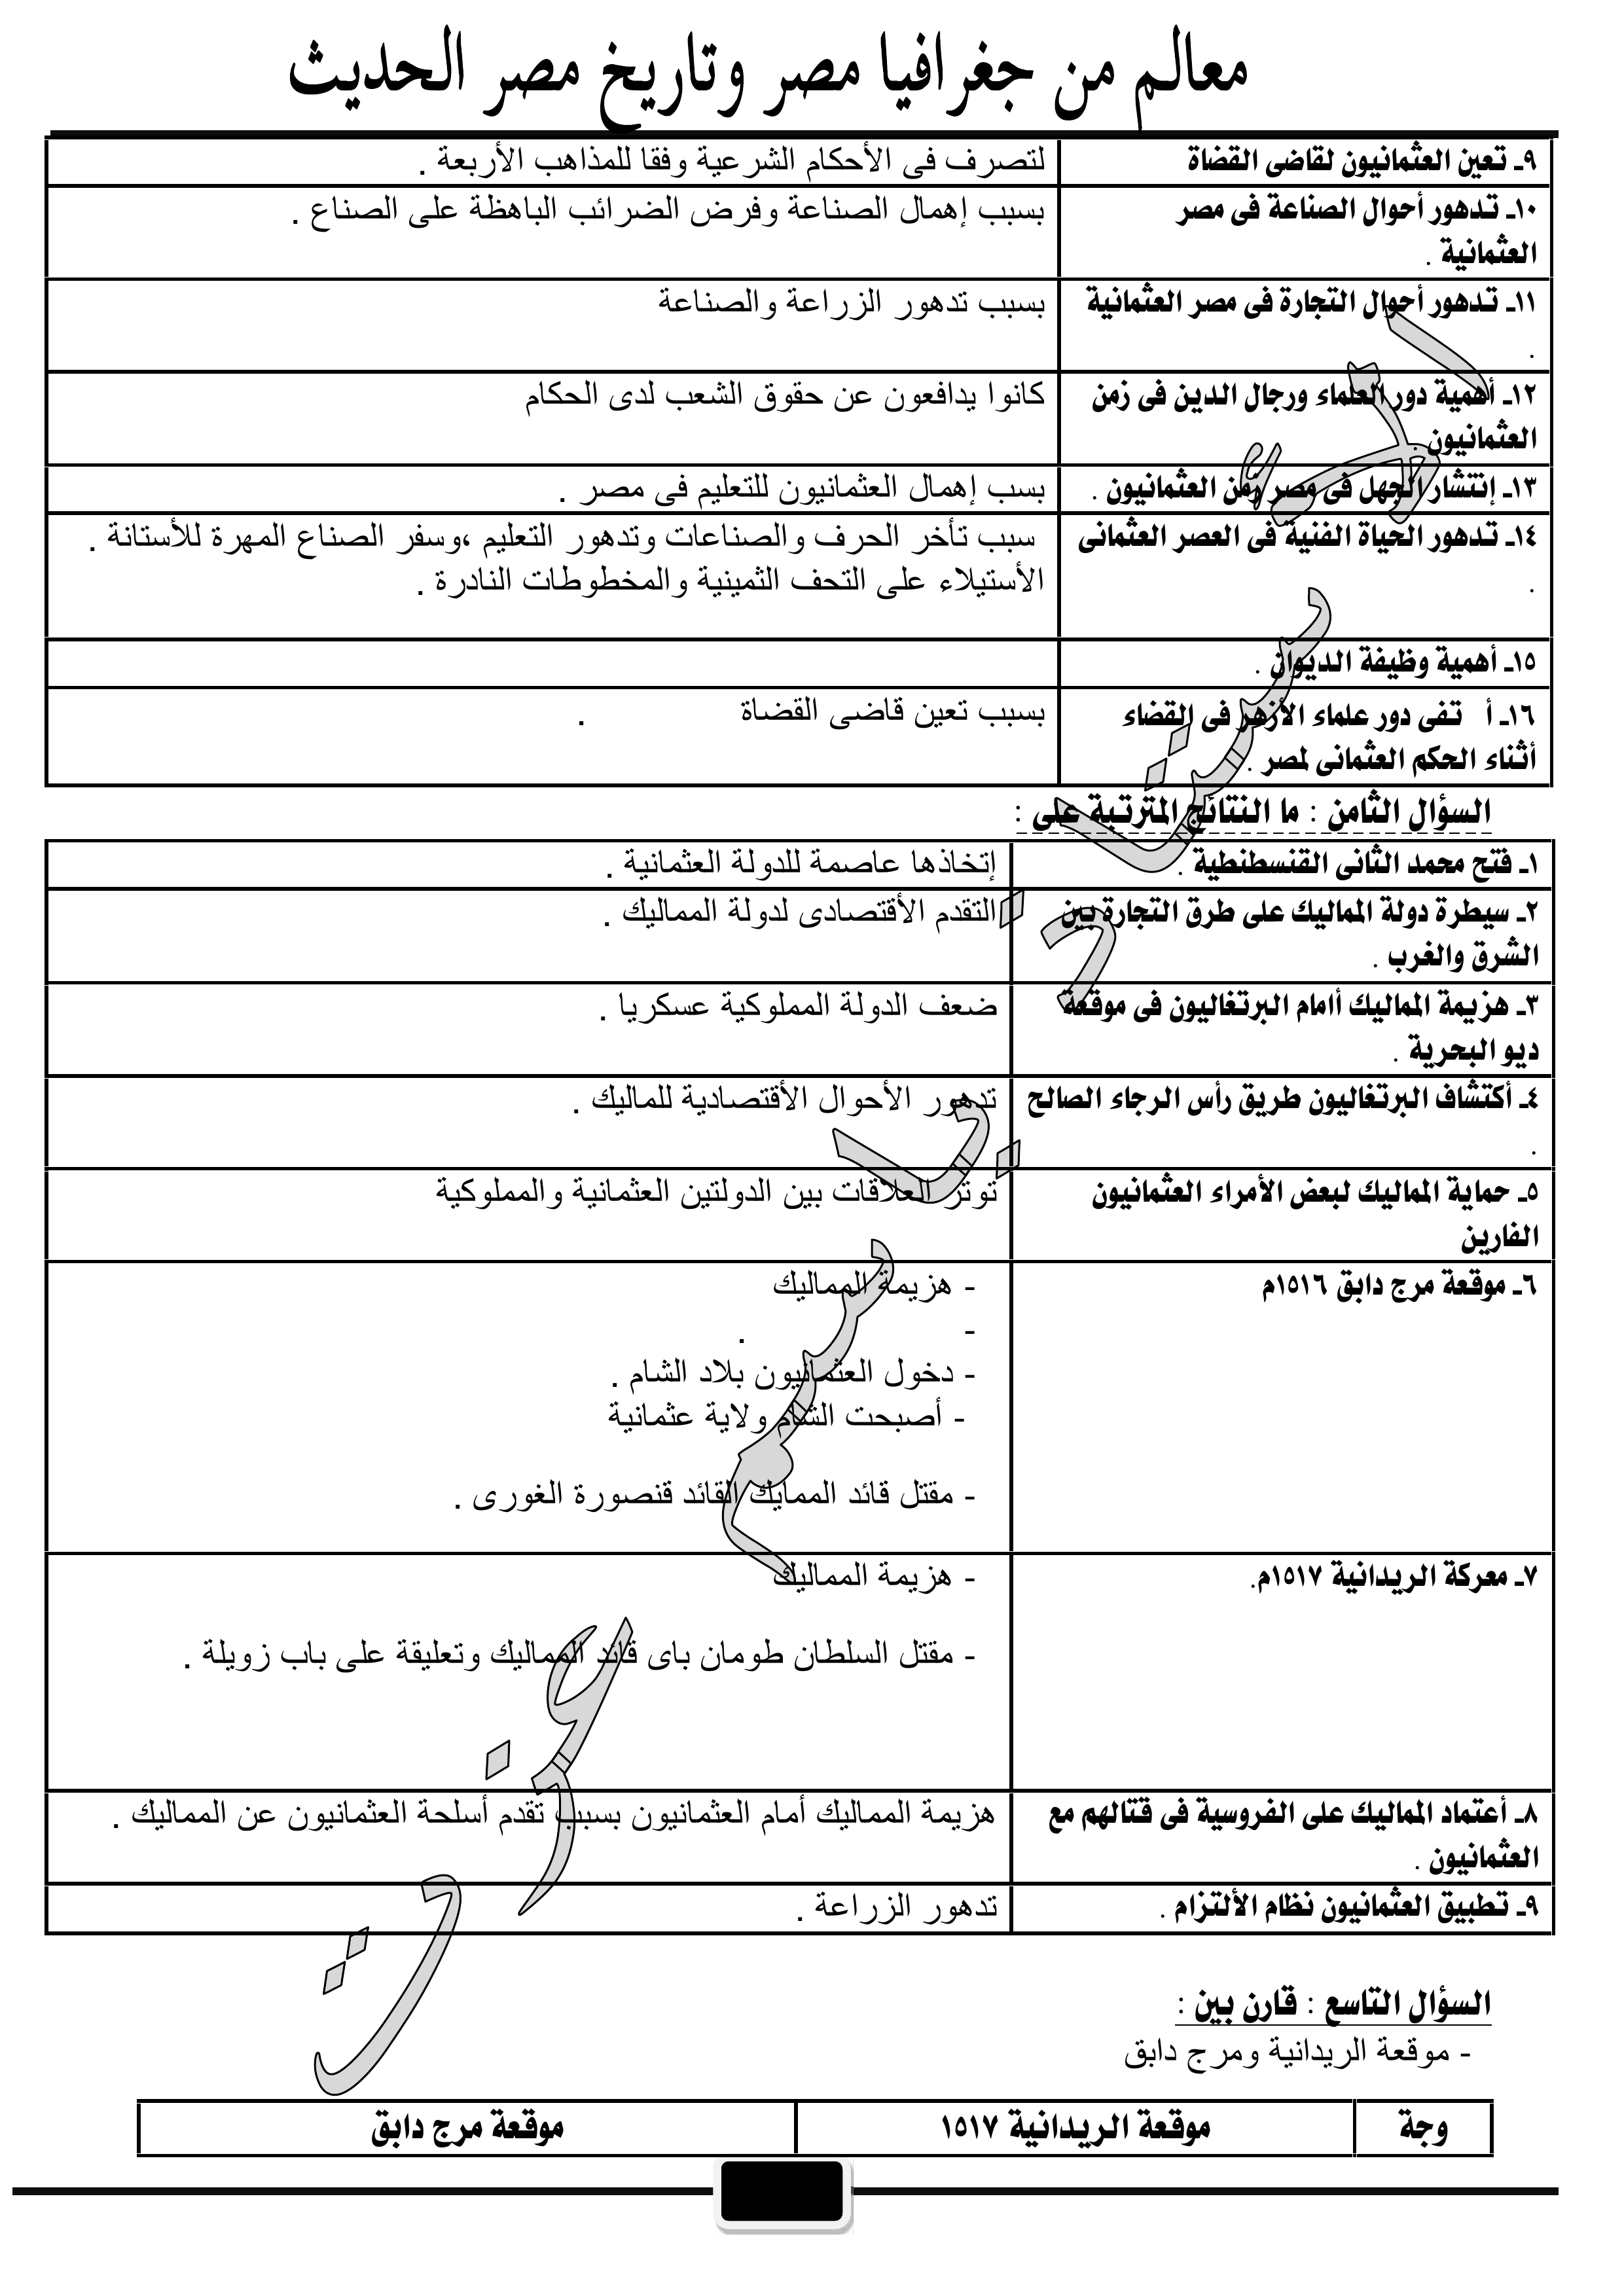 معالم من جغرافيا مصر وتاريخ مصر الحديث
٩ـ تعين العثمانيون لقاضى القضاة
لتصرف فى الأحكام الشرعية وفقا للمذاهب الأربعة .
١٠ـ تدهور أحوال الصناعة فى مصر
العثمانية .
بسبب إهمال الصناعة وفرض الضرائب الباهظة على الصناع .
١١ـ تدهور أحوال التجارة فى مصر العثمانية
.
بسبب تدهور الزراعة والصناعة
١٢ـ أهمية دور العلماء ورجال الدين فى زمن
العثمانيون .
كانوا يدافعون عن حقوق الشعب لدى الحكام
١٣ـ إنتشار الجهل فى مصر زمن العثمانيون .
بسب إهمال العثمانيون للتعليم فى مصر .
١٤ـ تدهور الحياة الفنية فى العصر العثمانى
.
سبب تأخر الحرف والصناعات وتدهور التعليم ،وسفر الصناع المهرة للأستانة .
الأستيلاء على التحف الثمينية والمخطوطات النادرة .
١٥ـ أهمية وظيفة الديوان .
١٦ـ أ تفى دور علماء الأزهر فى القضاء
أثناء الحكم العثمانى لمصر .
بسبب تعين قاضى القضاة .
السؤال الثامن : ما النتائج المترتبة على :
١ـ فتح محمد الثانى القنسطنطية .
إتخاذها عاصمة للدولة العثمانية .
٢ـ سيطرة دولة المماليك على طرق التجارة بين
الشرق والغرب .
التقدم الأقتصادى لدولة المماليك .
٣ـ هزيمة المماليك أامام البرتغاليون فى موقعة
ديو البحرية .
ضعف الدولة المملوكية عسكريا .
٤ـ أكتشاف البرتغاليون طريق رأس الرجاء الصالح
.
تدهور الأحوال الأقتصادية للماليك .
٥ـ حماية المماليك لبعض الأمراء العثمانيون
الفارين
توتر العلاقات بين الدولتين العثمانية والمملوكية
٦ـ موقعة مرج دابق ١٥١٦م
- هزيمة المماليك
- .
- دخول العثمانيون بلاد الشام .
- أصبحت الشام ولاية عثمانية
- مقتل قائد الممايك القائد قنصورة الغورى .
٧ـ معركة الريدانية ١٥١٧م.
- هزيمة المماليك
- مقتل السلطان طومان باى قائد المماليك وتعليقة على باب زويلة .
٨ـ أعتماد المماليك على الفروسية فى قتالهم مع
العثمانيون .
هزيمة المماليك أمام العثمانيون بسبب تقدم أسلحة العثمانيون عن المماليك .
٩ـ تطبيق العثمانيون نظام الألتزام .
تدهور الزراعة .
السؤال التاسع : قارن بين :
- موقعة الريدانية ومرج دابق
وجة
موقعة الريدانية ١٥١٧
موقعة مرج دابق